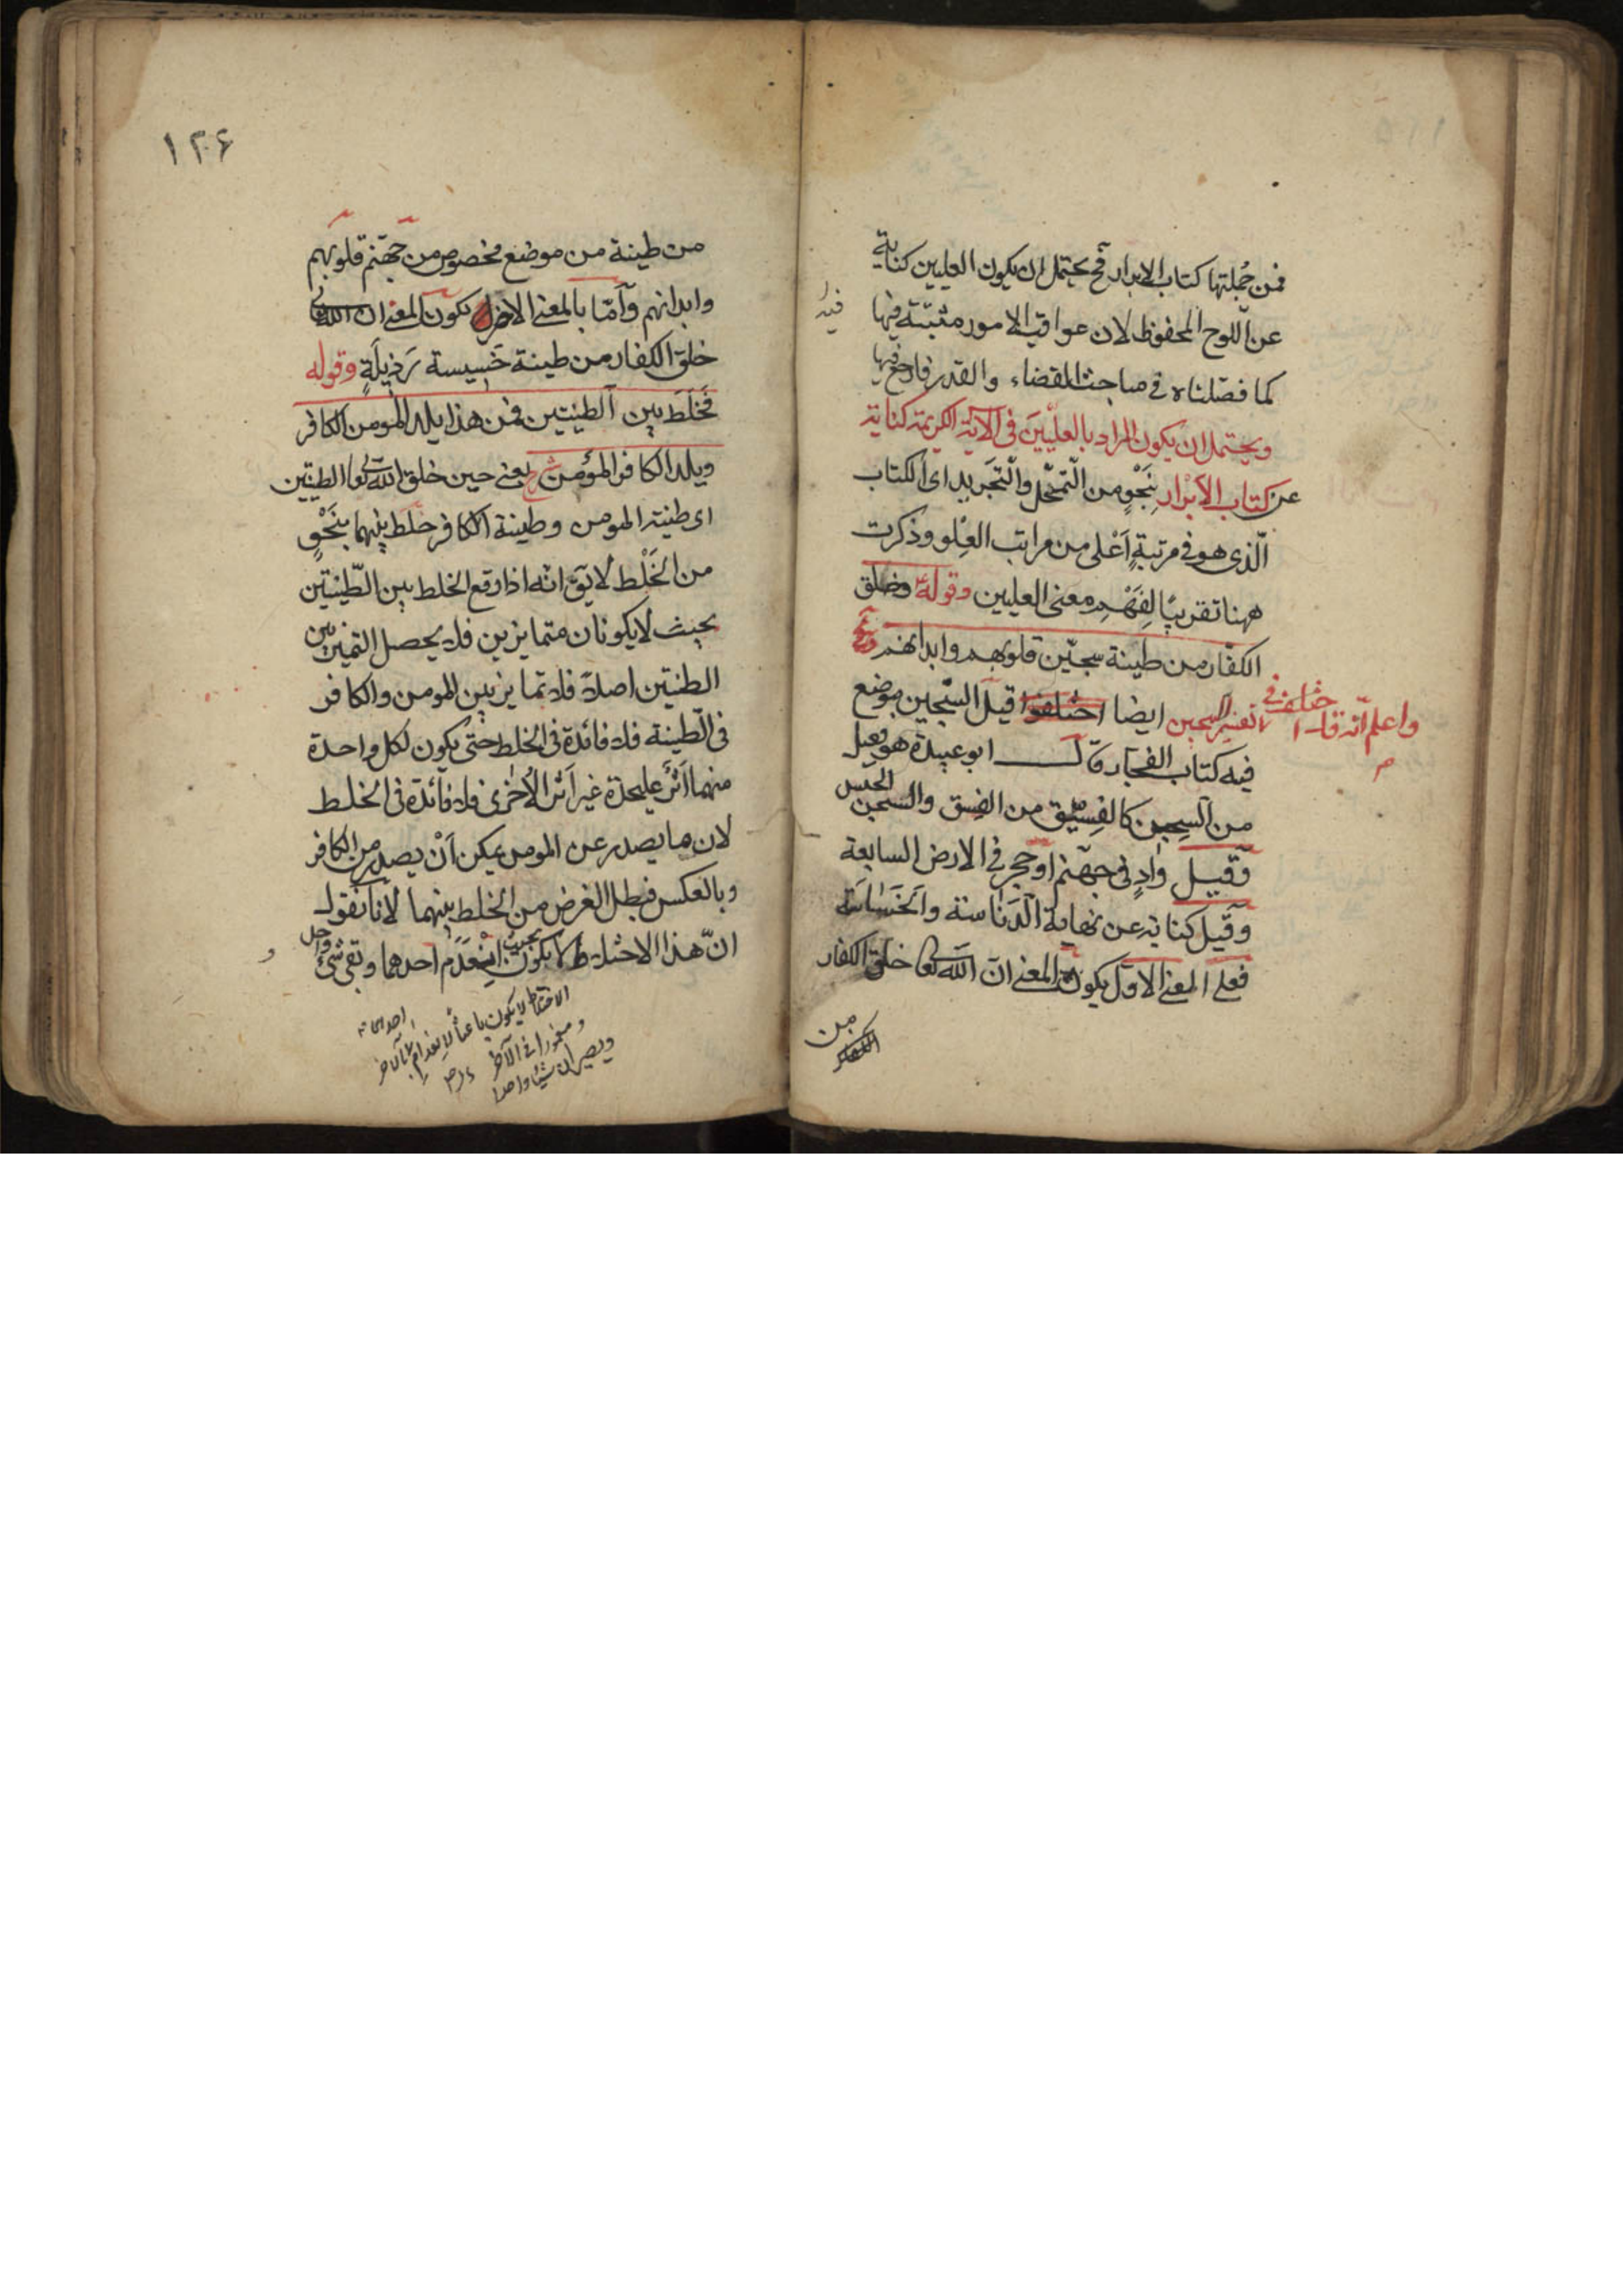 فمن جُملتها كتاب الابرار فح يحتمل ان يكون العليين كناية
عن اللوح المحفوظ لان عواقب الامور مثبتة فيها
فيه
كما فصّلناه في مباحث القضاء والقدر فارجع فيها
ويحتمل ان يكون المراد بالعلّيين في الآية الكريمة كناية
عن كتاب الأبْرار بِنَحْوٍ من التّمحّل والتّجَريد اى الكتاب
الّذى هو في مرتبةٍ اَعْلى من مراتب العِلو وذكرت
ههنا تقريبًا لِفَهْمِ معنى العليين وقوله وخلق
الكفّار من طينة سجّين قلوبهم وابدانهم
واعلم انّه قد اختلف في تفسير السجين ايضا اختلفوا قيل السّجين موضع
م
فيه كتاب الفجار وقال ابو عبيدة هو فعيل
من السِجن كالفِسّيق من الفِسق والسجن الحبس
وقيل وادٍ في جهنّم او حجر في الارض السابعة
وقيل كناية عن نهاية الدّناسة والخَسَاسَة
فعلى المعنى الاوّل يكون المعنى انّ اللّه تعا خلق الكفار
من
الكفار
١٢۶
من طينة من موضع مخصوص من جهنّم قلوبهم
وابدانهم وأمّا بالمعنى الاخر يكون المعنى ان الله تعالى
خلق الكفار من طينة خَسِيسة رَذِيلَةٍ وقوله
فَخَلَطَ بين الطينتين فمن هذا يلد المومن الكافر
ويلد الكافر المؤمن يعنى حين خلق اللّه تعا الطينتين
اى طينة المومن وطينة الكافر خَلَط بينهما بنَحْوٍ
من الخَلْط لا يَقّ انّه اذا وقع الخلط بين الطّينتين
بحيث لا يكونان متمايزين فلا يحصل التميز بين
الطينتين اصلاً فلا تمايز بين المومن والكافر
في الطّينة فلا فائدة في الخلط حتى يكون لكل واحدة
منهما اَثَرٌ عليحدة غير اَثر الأخرى فلا فائدة في الخلط
لان ما يصدر عن المومن يمكن أنْ يصدر من الكافر
وبالعكس فبطل الغرض من الخلط بينهما لأنا نقول
انّ هذا الاختلاط لا يكون بحيث اِنْعَدَم احدهما وبقى شئ واحد
و
الاختلاط لا يكون باعثاً لاِنعدام احدهما بالآخر
و في الآخر
ويصيران شيئا واحدا